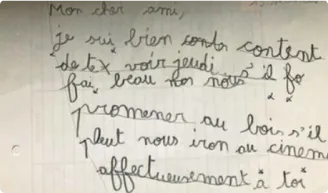 Mon cher ami,
je sui bien contente content
de tex voir jeudi, s'il fo
fai beau nos nous
promener au bois s'il
pleut nous iron au cinem
affectueusement à toi